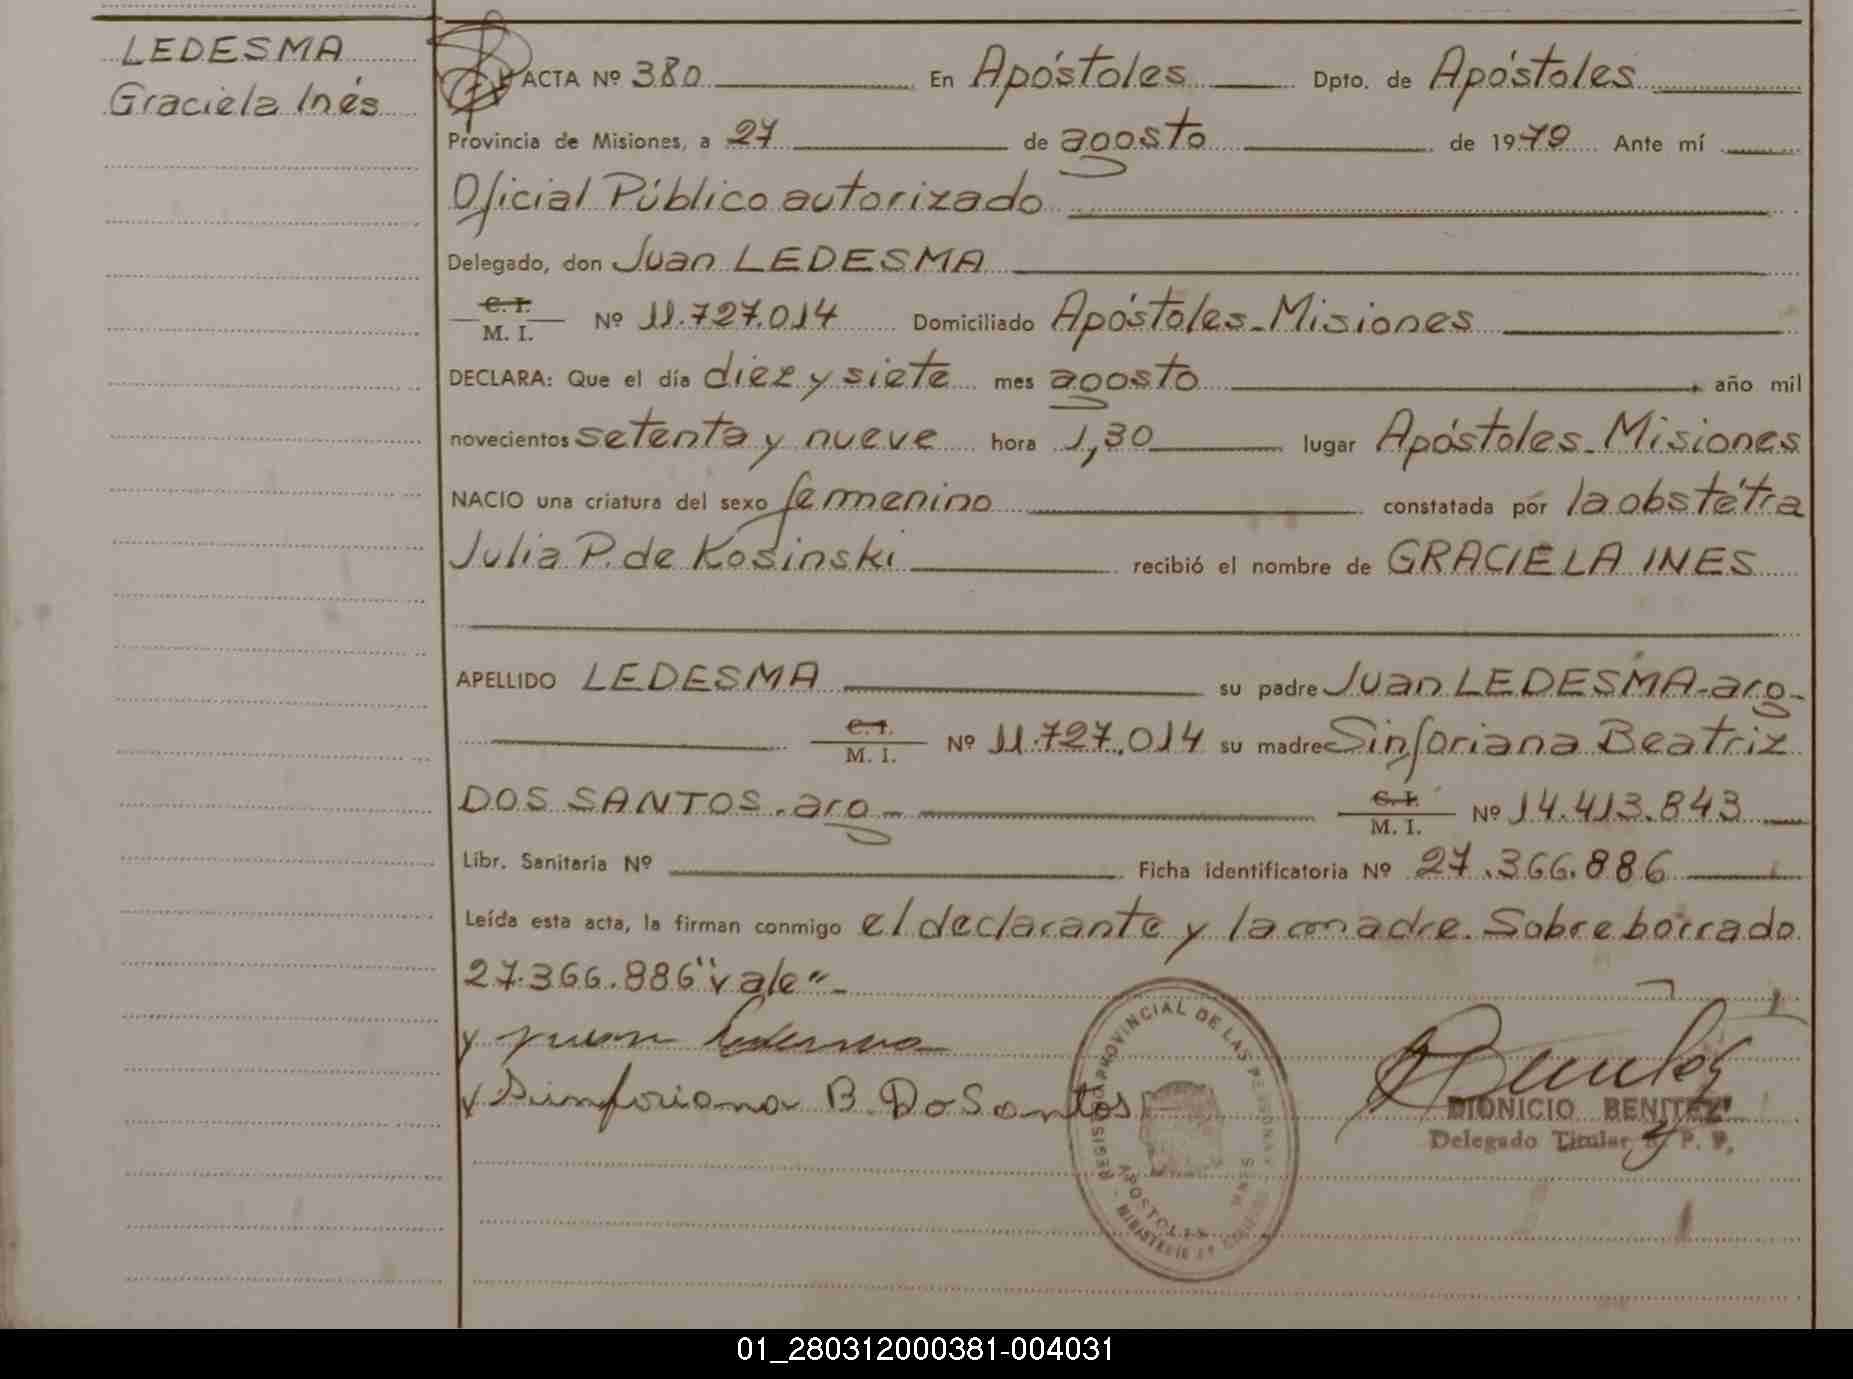 LEDESMA
Graciela Inés
ACTA Nº 380 En Apóstoles Dpto. de Apóstoles
Provincia de Misiones, a 27 de agosto de 1979 Ante mí
Oficial Público autorizado
Delegado, don Juan LEDESMA
C. I.
M. I. Nº 11.727.014 Domiciliado Apóstoles-Misiones
DECLARA: Que el día diez y siete mes agosto año mil
novecientos setenta y nueve hora 1,30 lugar Apóstoles-Misiones
NACIO una criatura del sexo femenino constatada por la obstétra
Julia P. de Kosinski recibió el nombre de GRACIELA INES
APELLIDO LEDESMA su padre Juan LEDESMA-arg-
C. I.
M. I. Nº 11.727.014 su madre Sinforiana Beatriz
DOS SANTOS-arg- C. I.
M. I. Nº 14.413.843
Libr. Sanitaria Nº Ficha identificatoria Nº 27.366.886
Leída esta acta, la firman conmigo el declarante y la madre. Sobre borrado
27.366.886 "vale"-
Juan Ledesma
Sinforiana B. Do Santos
REGISTRO PROVINCIAL DE LAS PERSONAS
APOSTOLES
MISIONES
MINISTERIO DE GOBIERNO
Benitez
DIONICIO BENITEZ
Delegado Titular R. P. P.
01_280312000381-004031